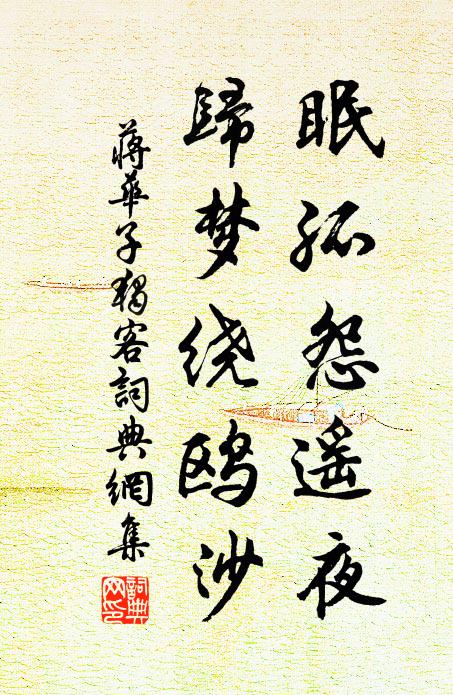 眠孤怨遥夜
歸梦绕鸥沙
蔣華子獨客詞典網集
詞典